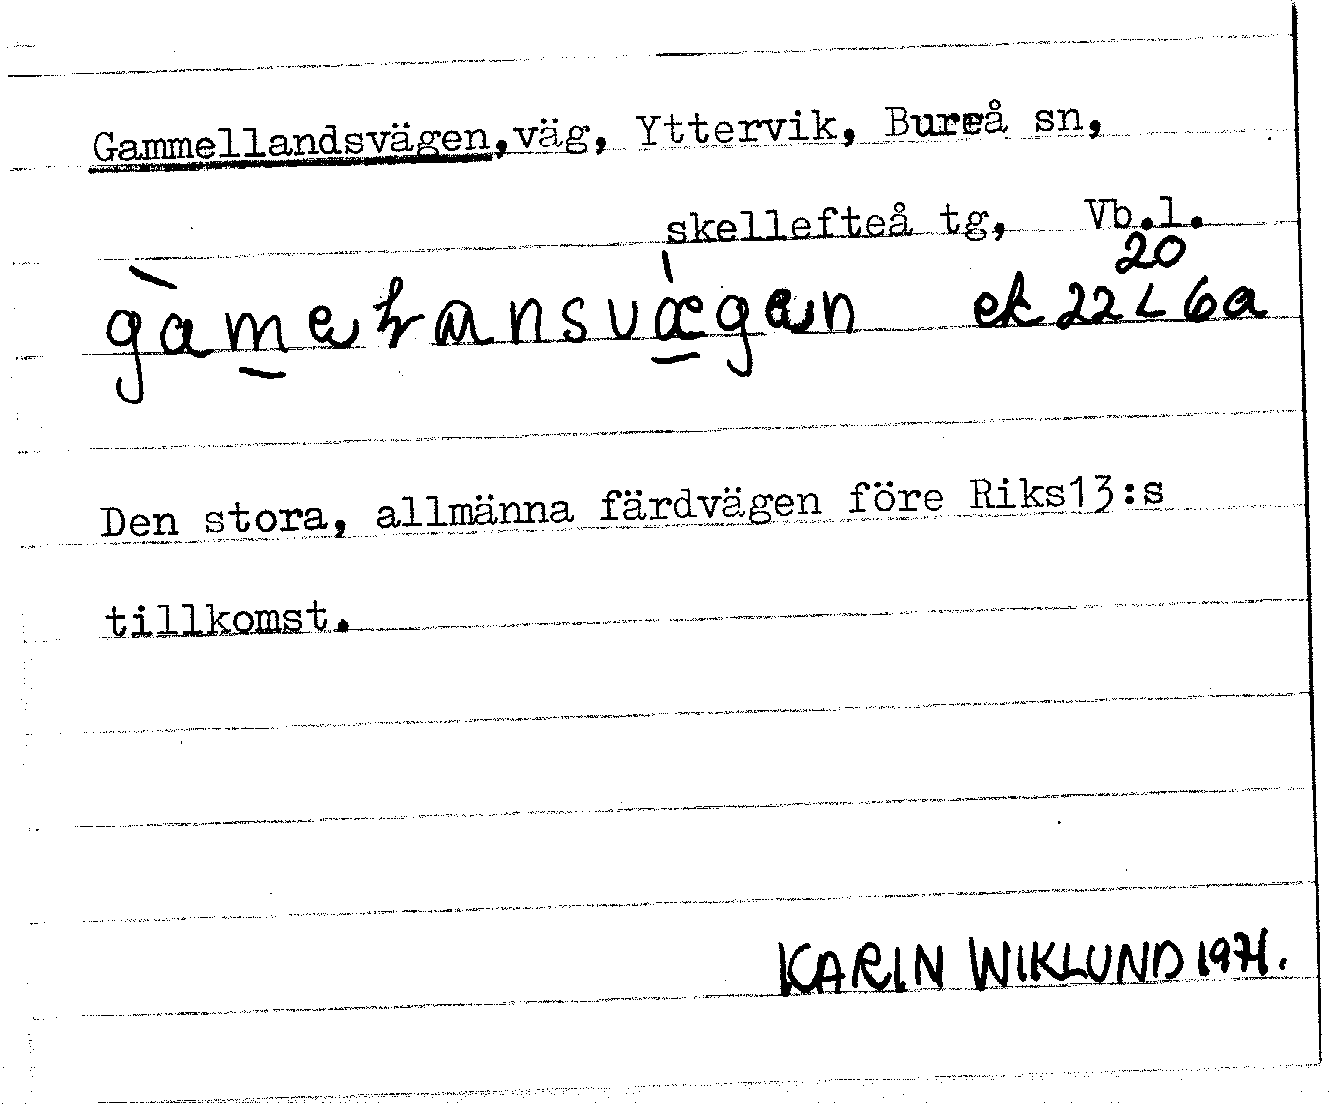 Gammellandsvägen,väg, Yttervik, Bureå sn,
skellefteå tg, Vb.l.
20
ek 22 L 6a
Den stora, allmänna färdvägen före Riks13:s
tillkomst.
KARIN WIKLUND 1971.